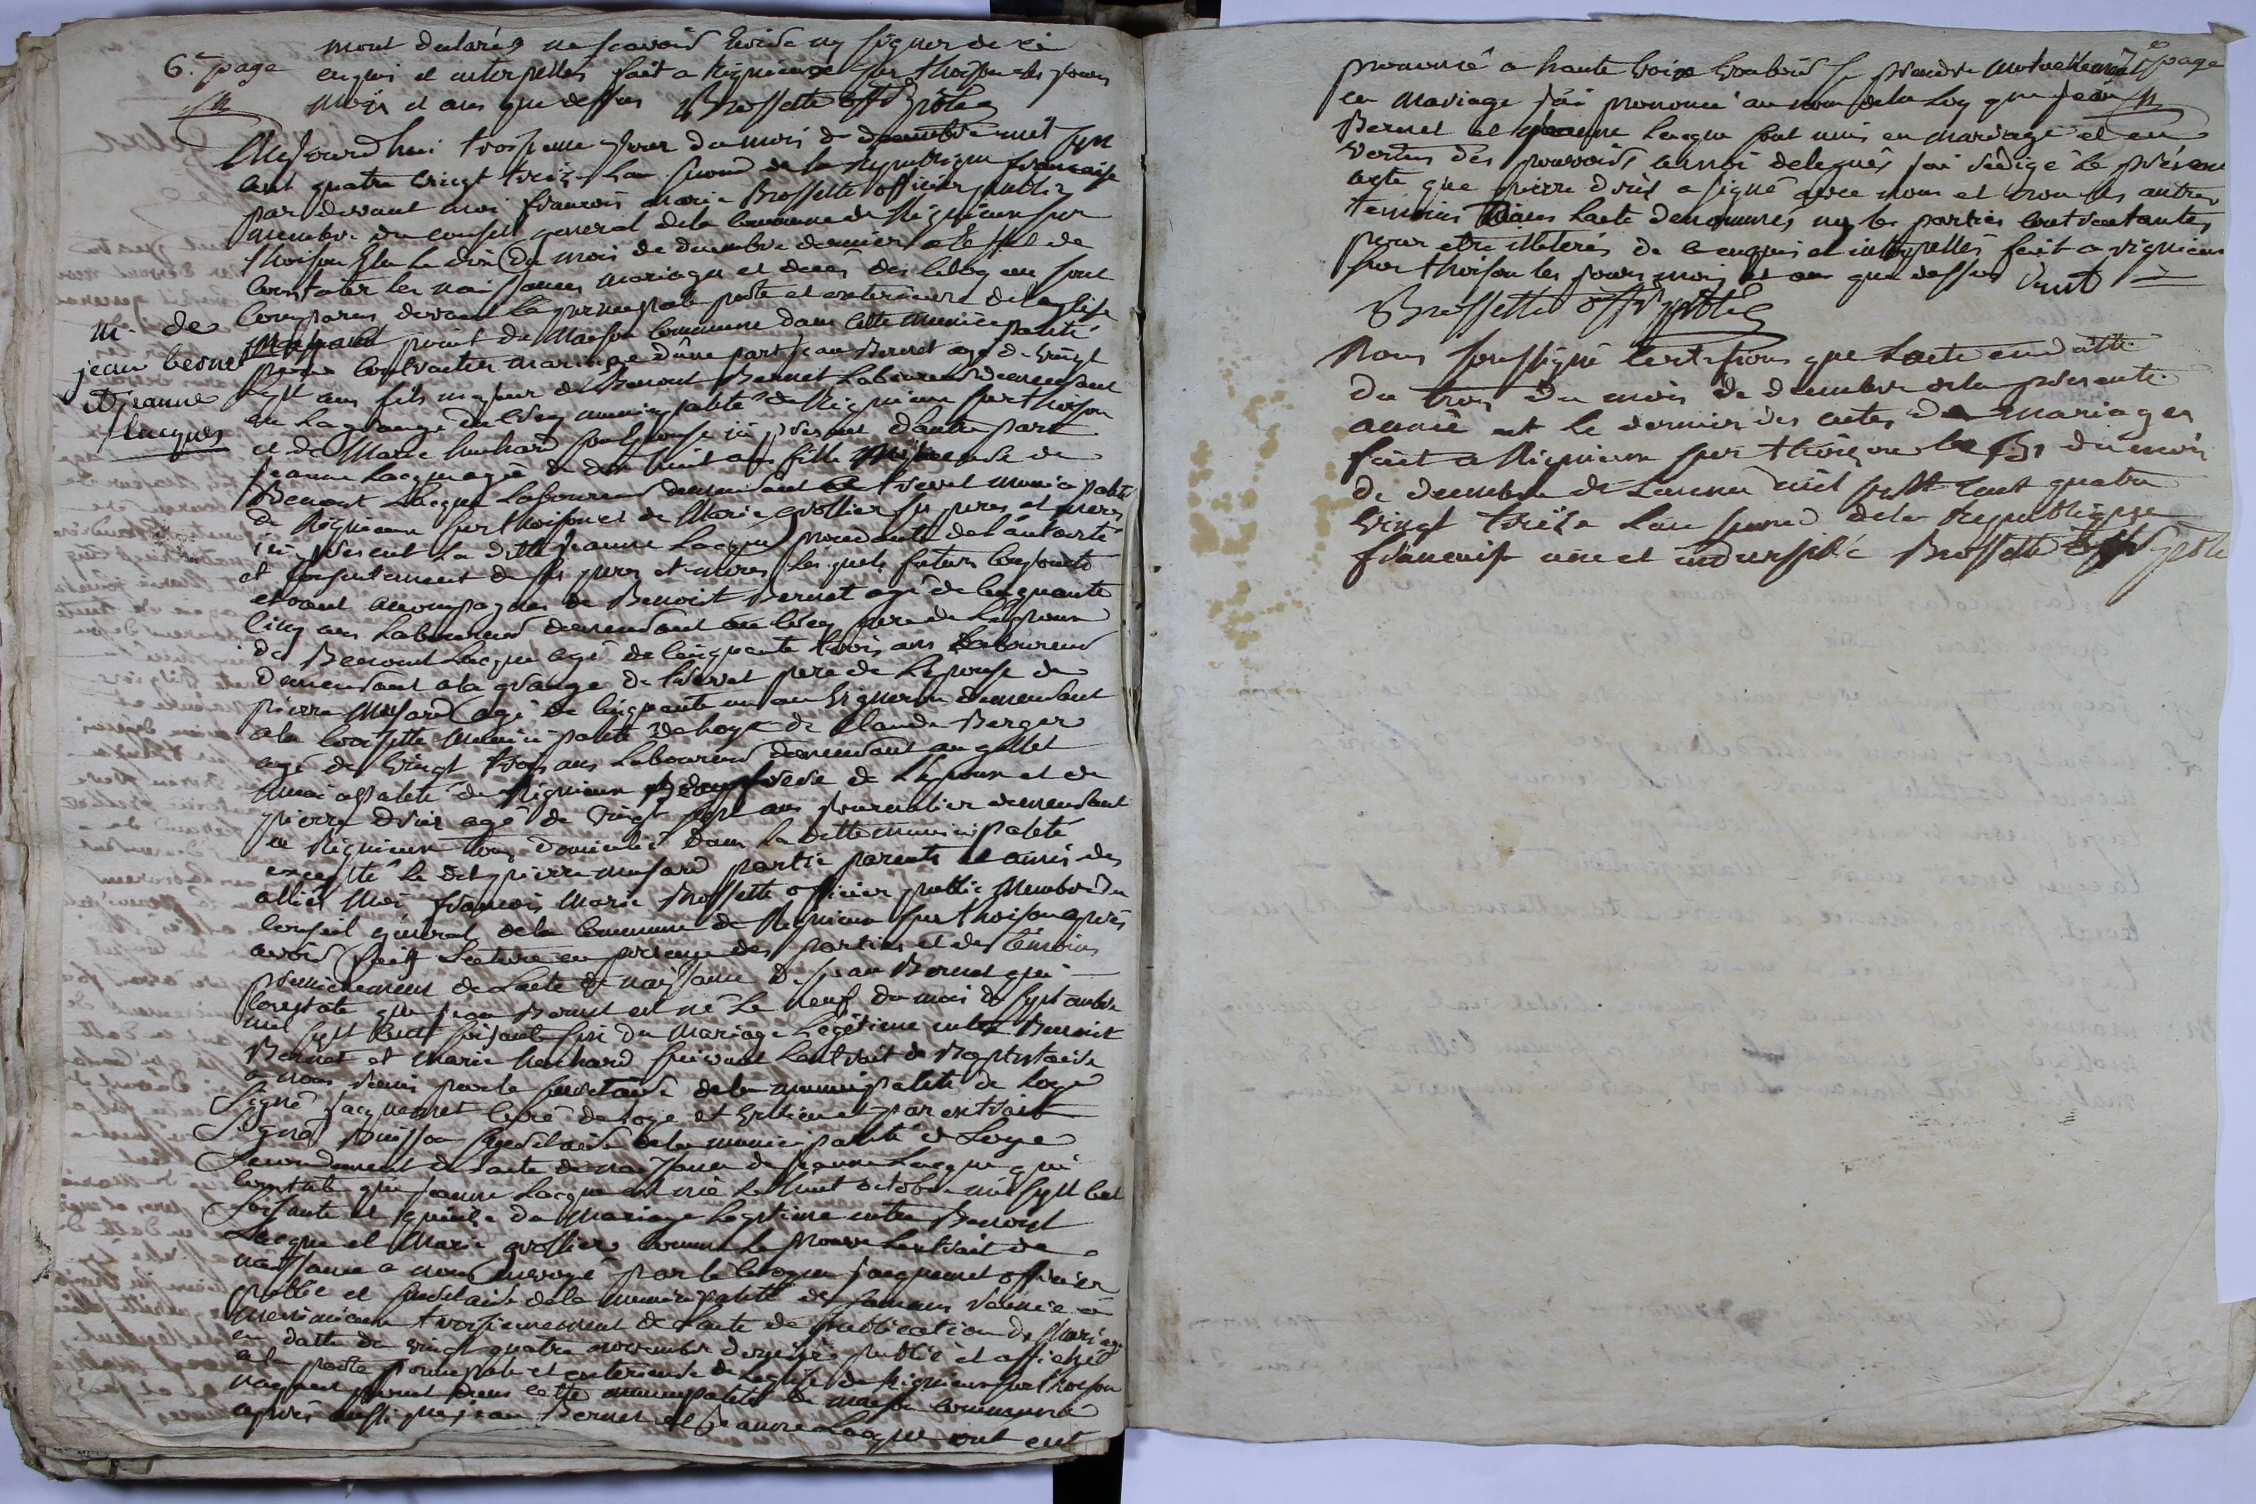 6.e page
mont declarés ne scavoir Ecrire ny signer de ce
enquis et interpellés fait a Rignieux sur thoison les jours
mois et ans que dessus Brossette off. public
m. de
jean bernet
et jeanne
lacques
Aujourd'hui troisieme jour du mois de decembre mil sept
cent quatre vingt treize l'an second de la republique francaise
par devant moi francois marie Brossette officier public
membre du conseil general de la commune de Rignieux sur
thoison Elu le dix du mois de decembre dernier a leffet de
constater les naissances mariages et decès des citoyens sont
comparus devant la principale porte et exterieure de leglise
nayant point de maison commune dans cette municipalité
pour contracter mariage dune part jean Bernet agé de vingt
sept ans fils majeur de Benoit Bernet Laboureur demeurant
en la grange du municipalité de Rignieux sur thoison
et de Marie huchard son Epouse ici present dautre part
jeanne lacque agée de dix huit ans fille mineure de
Benoit lacque Laboureur demeurant municipalité
de Rignieux sur thoison et de Marie grollier ses peres et meres
ici present la ditte jeanne lacque procedante de l'autorité
et consentement de ses peres et meres les quels futurs conjoints
etoient accompagnes de Benoit Bernet agé de cinquante
cinq ans Laboureur demeurant pere de Lepoux
de Benoit lacque agé de cinquante trois ans Laboureur
demeurant a la grange de pere de Lepouse de
pierre musard agé de cinquante un an vigneron demeurant
a la municipalité de loye de Claude Berger
agé de vingt trois ans Laboureur demeurant au gellet
municipalité de Rignieux frere de Lepoux et de
pierre drier agé de vingt sept ans journalier demeurant
a Rignieux tous domicilié dans la ditte municipalité
excepté le dit pierre musard partie parents et amis des
alliés moi francois Marie Brossette officier public membre du
conseil géneral de la commune de Rignieux sur thoison aprés
avoir fait Lecture en presence des parties et des témoins
premierement de Lacte de naissance de jean Bernet qui
constate que jean Bernet est né le neuf du mois de septembre
mil sept cent soisante six du mariage legitime entre Benoit
Bernet et marie huchard suivant Lextrait de Baptistaire
a nous remis par le secretaire de la municipalité de loye
Signé jacquemet curé de loye et par extrait
Signé secretaire de la municipalité de Loye
Secondement de lacte de naissance de jeanne Lacque qui
constate que jeanne Lacque est née le huit octobre mil sept cent
soisante et quinze du mariage legitime entre Benoist
Lacque et Marie grollier comme le prouve lextrait de
naissance a nous envoyé par le citoyen jacquemet officier
public et secretaire de la municipalité de
meximieux troisiemement de Lacte de publication de mariage
en datte du vingt quatre novembre dernier publié et affiché
a la porte principale et exterieure de leglise de Rignieux sur thoison
nayant point dans cette municipalité de maison commune
aprés aussi que jean Bernet et jeanne Lacque ont eut
page
prononcé a haute voix vouloir se prendre mutuellement
en mariage jai prononcé au nom de la loy que jean
Bernet et jeanne lacque sont unis en mariage et en
vertus des pouvoirs a moi delegués jai redigé le present
acte que pierre drier a signé avec nous et non les autres
temoins dans lacte denommes ny les parties contractantes
pour etre illeterés de ce enquis et interpellés fait a rignieux
sur thoison les jours mois et an que dessus
Brossette off. public
Nous soussigné certifions que Lacte en datte
du trois du mois de decembre de la presente
année est le dernier des actes de mariages
fait a Rignieux sur thoison le 31 du mois
de decembre de Lannée mil sept cent quatre
vingt treize lan second de la Republique
francaise une et indivisible Brossette off. public